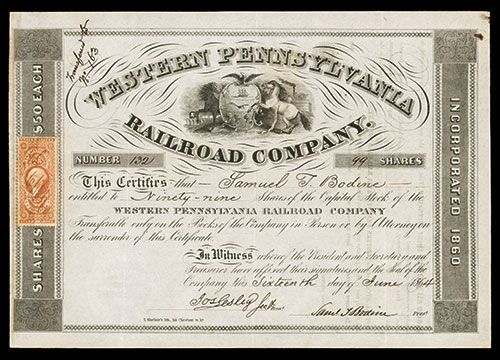 Transferred to
No 163
WESTERN PENNSYLVANIA
RAILROAD COMPANY.
SHARES $50 EACH
INCORPORATED 1860
NUMBER 132
99 SHARES
This Certifies that Samuel T Bodine
entitled to Ninety-nine Shares of the Capital Stock of the
WESTERN PENNSYLVANIA RAILROAD COMPANY
Transferable only on the Books of the Company in Person or by Attorney on
the surrender of this Certificate.
In Witness whereof the President and Secretary and
Treasurer have affixed their signatures and the Seal of the
Company this Sixteenth day of June 1864
Jos Lesley
Saml T Bodine Prest